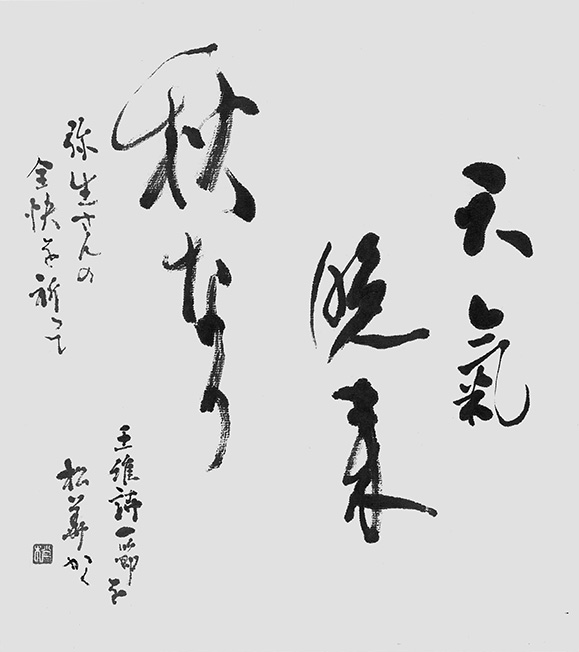 天氣
晩来
秋なり
弥生さんの
全快を祈って
王維詩一節を
松華かく